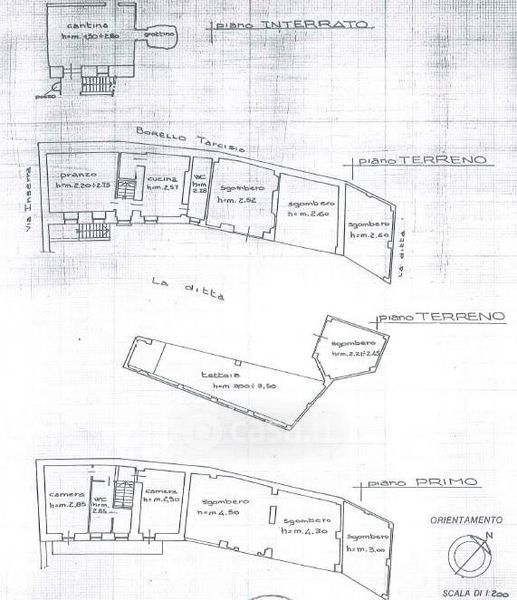 piano INTERRATO
cantina
grottino
pozzo
Borello Tarcisio
piano TERRENO
pranzo
h=m. 2.20÷2.75
cucina
h=m. 2.57
WC
h=m.
2.28
sgombero
h=m. 2.52
sgombero
h=m. 2.60
sgombero
h=m. 2.60
La ditta
La ditta
piano TERRENO
sgombero
tettoia
piano PRIMO
camera
h=m. 2.85
WC
h=m.
camera
h=m. 2.90
sgombero
h=m. 4.50
sgombero
h=m. 4.30
sgombero
h=m. 3.00
ORIENTAMENTO
N
SCALA DI 1:200